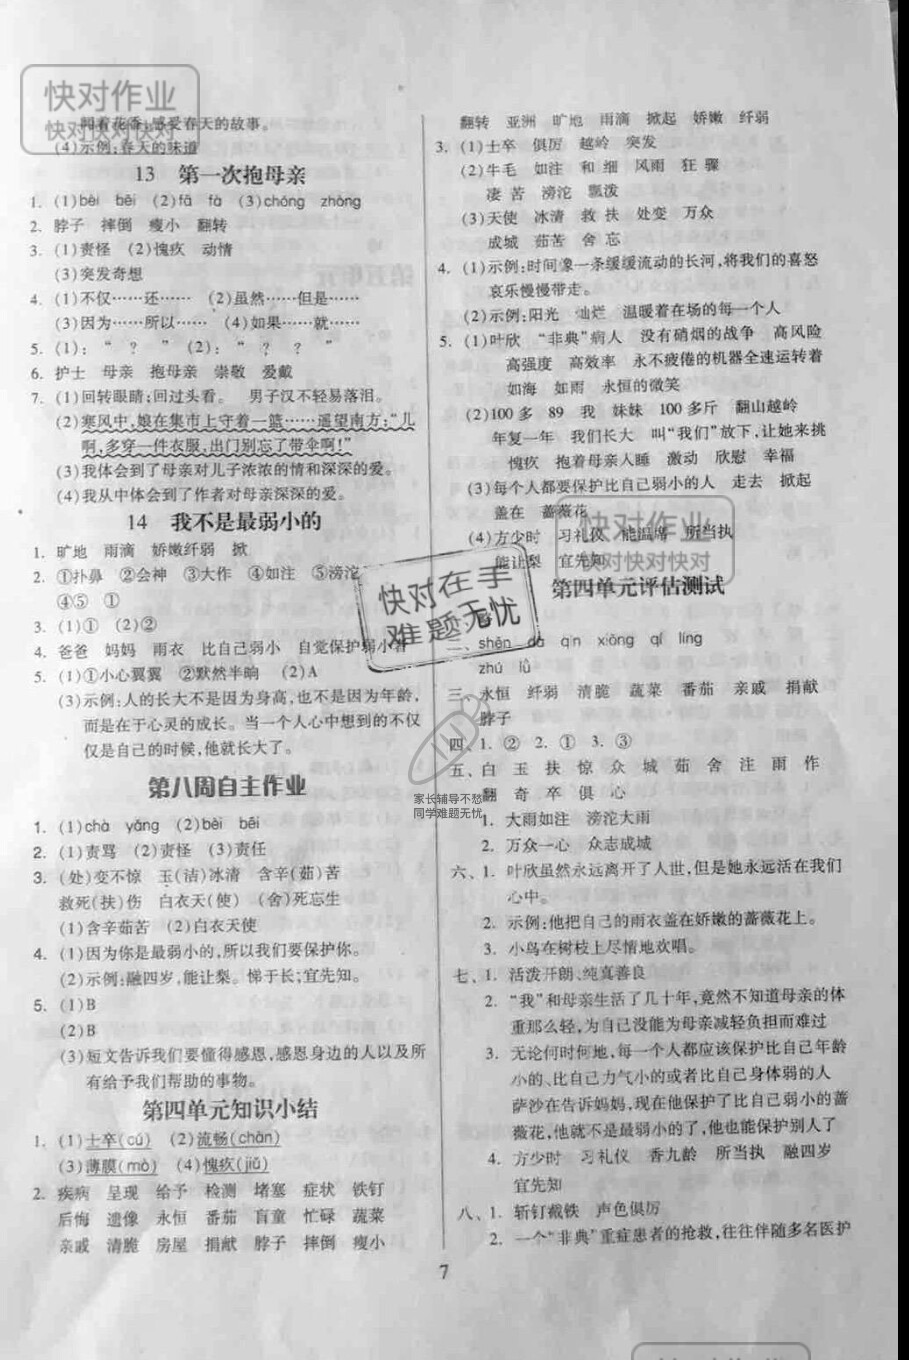 快对作业
快对快对快对
闻着花香;感受春天的故事。
(4)示例:春天的味道
13 第一次抱母亲
1. (1)bèi bēi (2)fā fà (3)chóng zhòng
2. 脖子 摔倒 瘦小 翻转
3. (1)责怪 (2)愧疚 动情
(3)突发奇想
4. (1)不仅……还…… (2)虽然……但是……
(3)因为……所以…… (4)如果……就……
5. (1):“ ? ” (2):“ ? ? ”
6. 护士 母亲 抱母亲 崇敬 爱戴
7. (1)回转眼睛;回过头看。 男子汉不轻易落泪。
(2)寒风中,娘在集市上守着一篮……遥望南方:“儿
啊,多穿一件衣服,出门别忘了带伞啊!”
(3)我体会到了母亲对儿子浓浓的情和深深的爱。
(4)我从中体会到了作者对母亲深深的爱。
14 我不是最弱小的
1. 旷地 雨滴 娇嫩纤弱 掀
2. ①扑鼻 ②会神 ③大作 ④如注 ⑤滂沱
④⑤ ①
3. (1)① (2)②
4. 爸爸 妈妈 雨衣 比自己弱小 自觉保护弱小者
5. (1)①小心翼翼 ②默然半晌 (2)A
(3)示例:人的长大不是因为身高,也不是因为年龄,
而是在于心灵的成长。当一个人心中想到的不仅
仅是自己的时候,他就长大了。
第八周自主作业
1. (1)chà yāng (2)bèi bēi
2. (1)责骂 (2)责怪 (3)责任
3. (处)变不惊 玉(洁)冰清 含辛(茹)苦
救死(扶)伤 白衣天(使) (舍)死忘生
(1)含辛茹苦 (2)白衣天使
4. (1)因为你是最弱小的,所以我们要保护你。
(2)示例:融四岁,能让梨。悌于长,宜先知。
5. (1)B
(2)B
(3)短文告诉我们要懂得感恩,感恩身边的人以及所
有给予我们帮助的事物。
第四单元知识小结
1. (1)士卒(cú) (2)流畅(chān)
(3)薄膜(mò) (4)愧疚(jiǔ)
2. 疾病 呈现 给予 检测 堵塞 症状 铁钉
后悔 遗像 永恒 番茄 盲童 忙碌 蔬菜
亲戚 清脆 房屋 捐献 脖子 摔倒 瘦小
翻转 亚洲 旷地 雨滴 掀起 娇嫩 纤弱
3. (1)士卒 俱厉 越岭 突发
(2)牛毛 如注 和 细 风雨 狂 骤
凄 苦 滂沱 飘泼
(3)天使 冰清 救 扶 处变 万众
成城 茹苦 舍 忘
4. (1)示例:时间像一条缓缓流动的长河,将我们的喜怒
哀乐慢慢带走。
(2)示例:阳光 灿烂 温暖着在场的每一个人
5. (1)叶欣 “非典”病人 没有硝烟的战争 高风险
高强度 高效率 永不疲倦的机器全速运转着
如海 如雨 永恒的微笑
(2)100多 89 我 妹妹 100多斤 翻山越岭
年复一年 我们长大 叫“我们”放下,让她来挑
愧疚 抱着母亲入睡 激动 欣慰 幸福
(3)每个人都要保护比自己弱小的人 走去 掀起
盖在 蔷薇花
(4)方少时 习礼仪 能温席 所当执
能让梨 宜先知
快对作业
快对快对快对
第四单元评估测试
快对在手
难题无忧
二、shēn dā qīn xiōng qí líng
zhú lǜ
三、永恒 纤弱 清脆 蔬菜 番茄 亲戚 捐献
脖子
四、1. ② 2. ① 3. ③
五、白 玉 扶 惊 众 城 茹 舍 注 雨 作
翻 奇 卒 俱 心
1. 大雨如注 滂沱大雨
2. 万众一心 众志成城
家长辅导不愁
同学难题无忧
六、1. 叶欣虽然永远离开了人世,但是她永远活在我们
心中。
2. 示例:他把自己的雨衣盖在娇嫩的蔷薇花上。
3. 小鸟在树枝上尽情地欢唱。
七、1. 活泼开朗、纯真善良
2. “我”和母亲生活了几十年,竟然不知道母亲的体
重那么轻,为自己没能为母亲减轻负担而难过
3. 无论何时何地,每一个人都应该保护比自己年龄
小的、比自己力气小的或者比自己身体弱的人
萨沙在告诉妈妈,现在他保护了比自己弱小的蔷
薇花,他就不是最弱小的了,他也能保护别人了
4. 方少时 习礼仪 香九龄 所当执 融四岁
宜先知
八、1. 斩钉截铁 声色俱厉
2. 一个“非典”重症患者的抢救,往往伴随多名医护
7